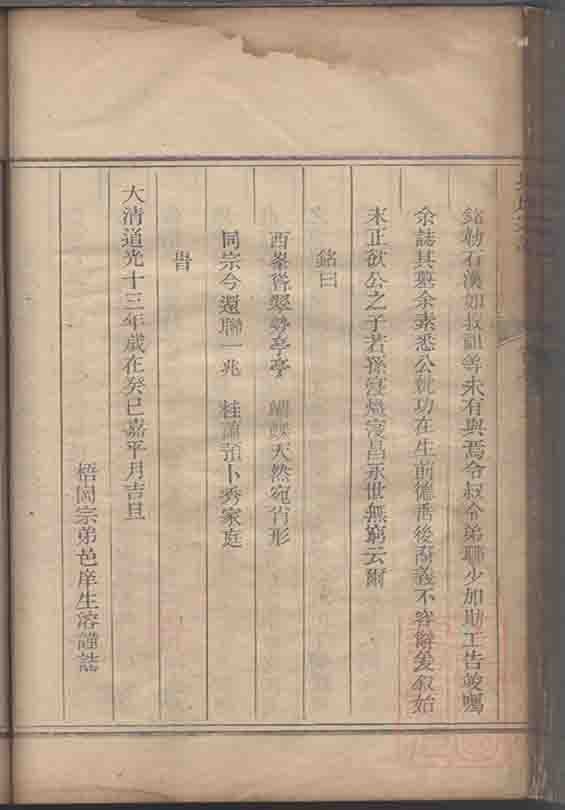 銘勒石漢如叔祖等未有與焉令叔令弟聊少加助工告竣囑
余誌其墓余素悉公就功在生前德垂後裔義不容辭爰叙始
末正欲公之子若孫寔熾寔昌永世無窮云爾
銘曰
西峯聳翠勢亭亭 蝴蝶天然宛肖形
同宗今還聯一兆 桂蘭預卜秀家庭
旹
大清道光十三年歲在癸巳嘉平月吉旦
悟岡宗弟邑庠生溶謹誌